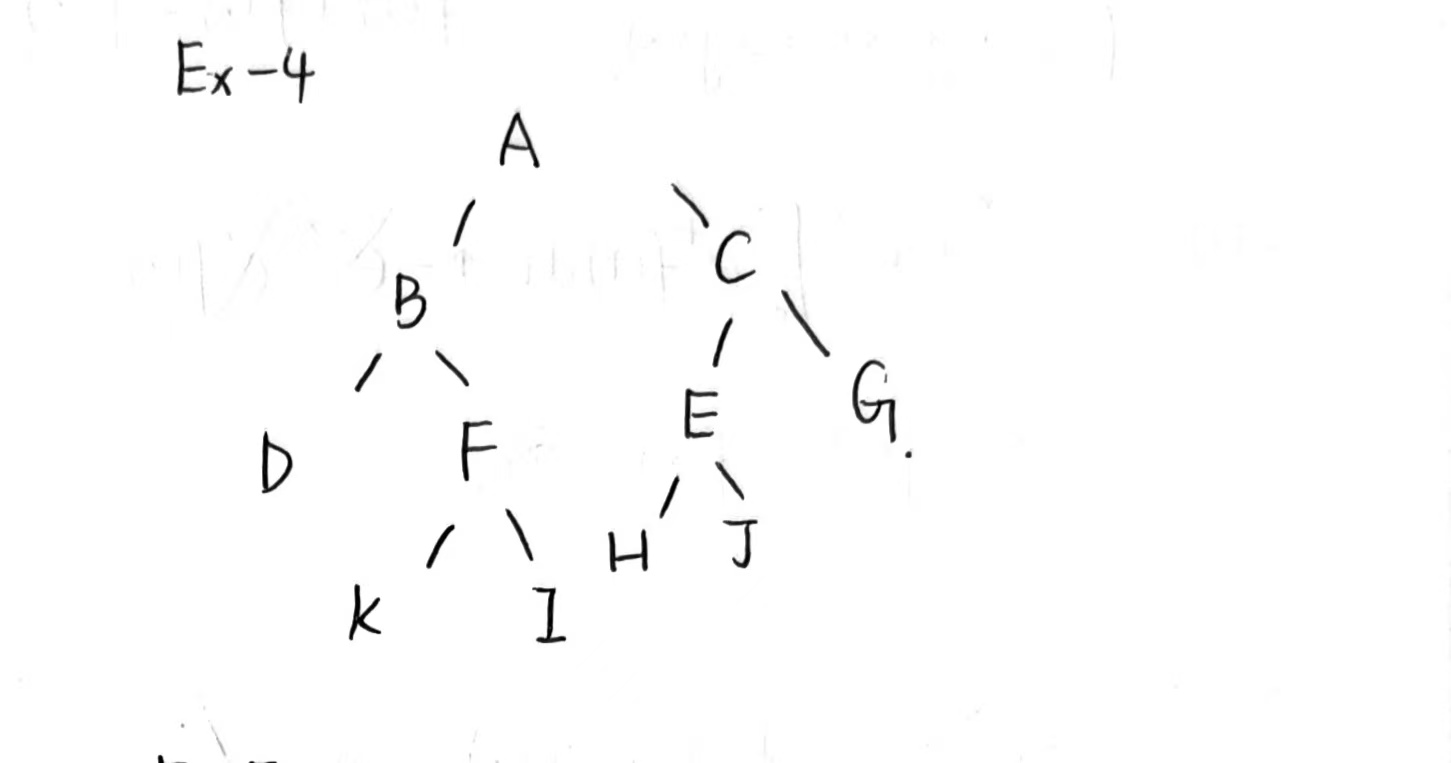 Ex-4
A
B C
D F E G.
K I H J